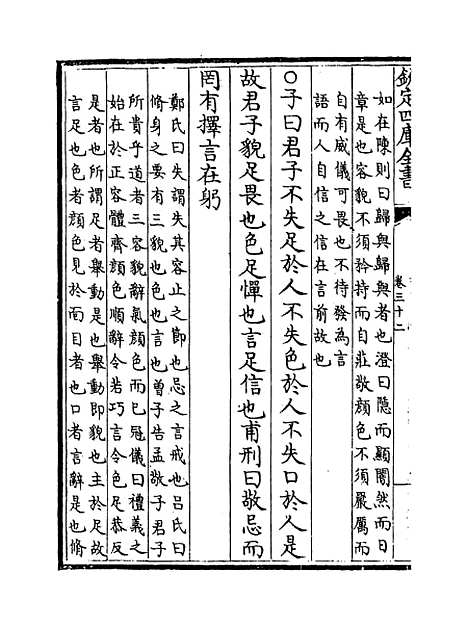 欽定四庫全書
卷三十二
如在陳則曰歸與歸與者也澄曰隠而顯闇然而日
章是也容貌不須矜持而自莊敬顔色不須嚴厲而
自有威儀可畏也不待發為言
語而人自信之信在言前故也
○子曰君子不失足於人不失色於人不失口於人是
故君子貌足畏也色足憚也言足信也甫刑曰敬忌而
罔有擇言在躬
鄭氏曰失謂失其容止之節也忌之言戒也吕氏曰
脩身之要有三貌也色也言也曽子告孟敬子君子
所貴乎道者三容貌辭氣顔色而已冠儀曰禮義之
始在於正容體齊顔色順辭令若巧言令色足恭反
是者也所謂足者舉動是也舉動即貌也主於足故
言足也色者顔色見於面目者也口者言辭是也脩